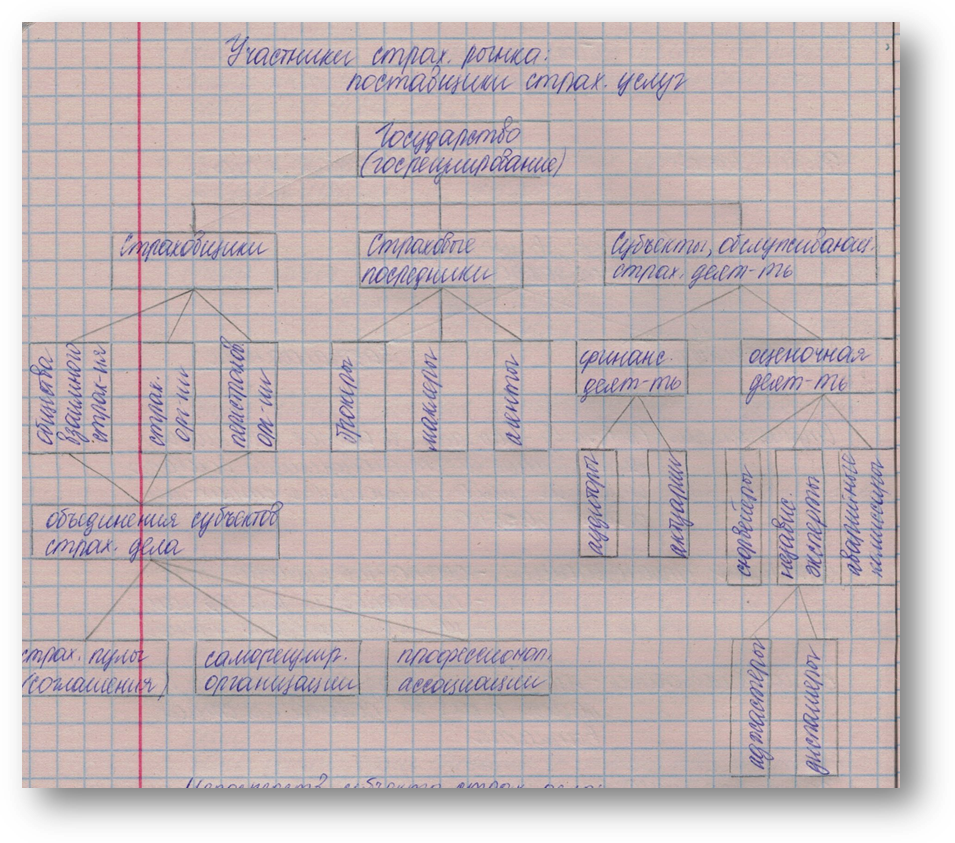 Участники страх. рынка:
поставщики страх. услуг
Государство
(госрегулирование)
Страховщики
Страховые
посредники
Субъекты, обслуживающ.
страх. деят-ть
общества
взаимного
страх-ния
страх.
орг-ии
перестрахов.
орг-ии
брокеры
маклеры
агенты
финанс.
деят-ть
оценочная
деят-ть
аудиторы
актуарии
сюрвейеры
независ.
эксперты
аварийные
комиссары
объединения субъектов
страх. дела
страх. пулы
(соглашения)
саморегулир.
организации
профессионал.
ассоциации
аджастеры
диспашеры
субъекта страх. дела: